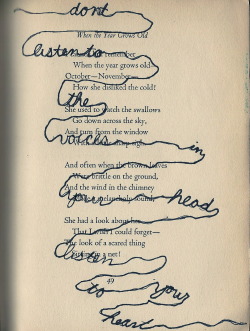 dont
When the Year Grows Old
listen to
remember
When the year grows old—
October—November—
How she disliked the cold!
the
She used to watch the swallows
Go down across the sky,
And turn from the window
voices in
And often when the brown leaves
Were brittle on the ground,
And the wind in the chimney
your head
melancholy sound,
She had a look about her
That I wish I could forget—
The look of a scared thing
listen
net!
49
to your
heart